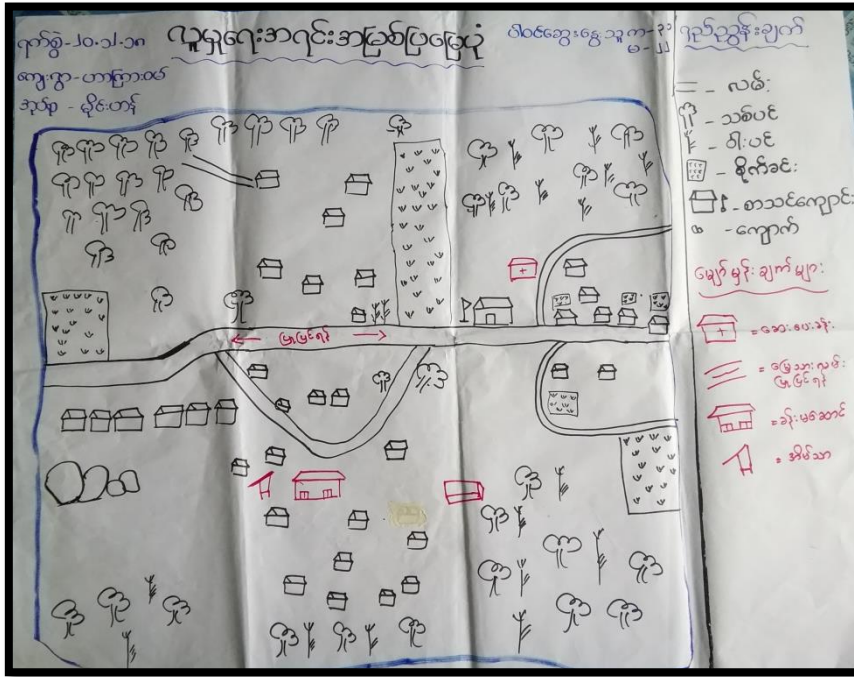 ရက်စွဲ-၂၀.၁.၂.၁၈
လူမှုရေးအရင်းအမြစ်ပြမြေပုံ
ပါဝင်ဆွေးနွေးသူ က-၃၁
မ-၂၂
ကျေးရွာ-ဟကြာဝမ်
အုပ်စု - မိုင်းဟန်
ရည်ညွှန်းချက်
= - လမ်း
- သစ်ပင်
- ဝါးပင်
- စိုက်ခင်း
- စာသင်ကျောင်း
- ကျောက်
မျှော်မှန်းချက်များ
= ဆေးပေးခန်း
= မြေသားလမ်း
ပြုပြင်ရန်
= ခန်းမဆောင်
= အိမ်သာ
ပြုပြင်ရန်